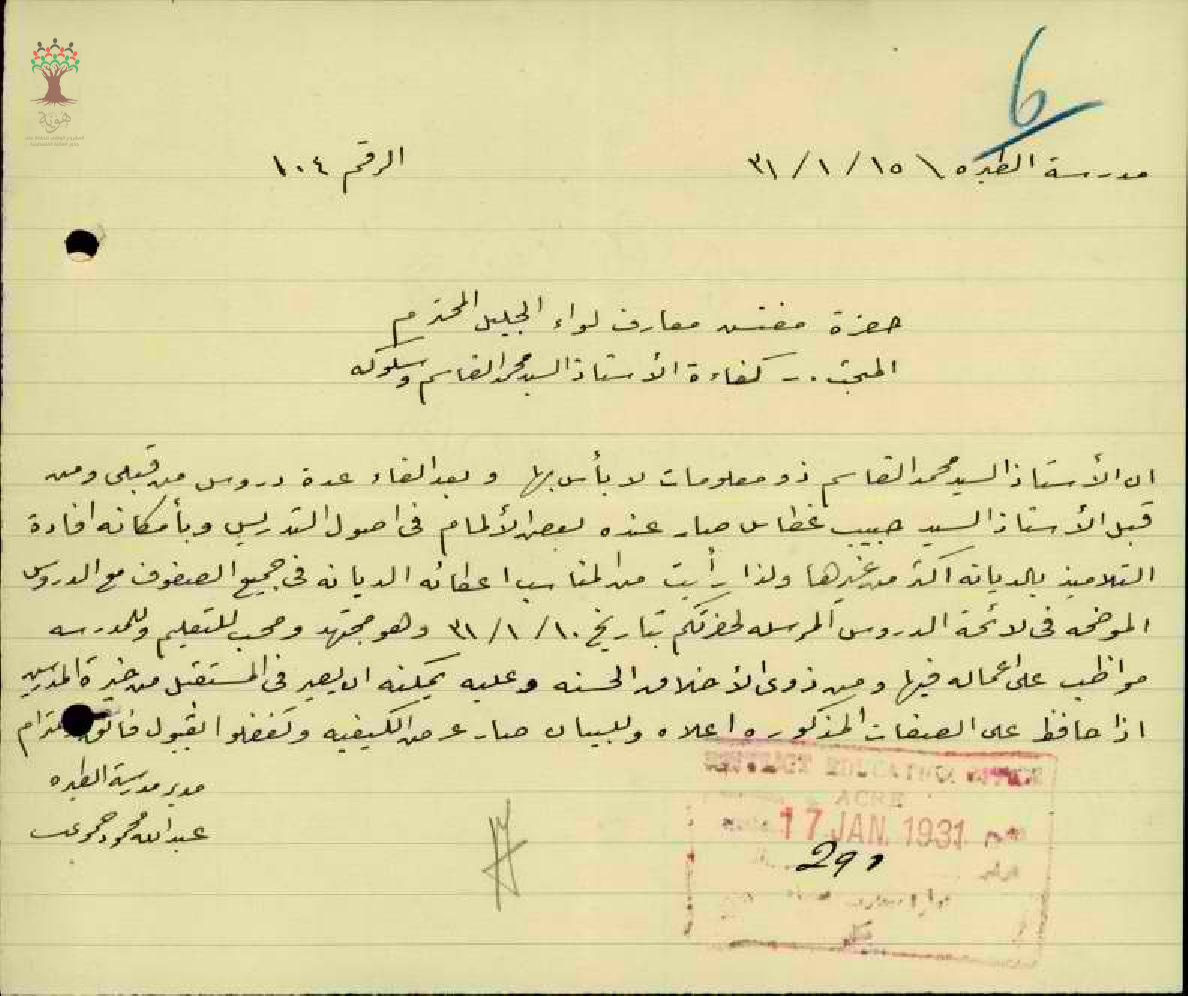 6
مدرسة الطيره \ ١٥ / ١ / ٣١
الرقم ١٠٤
حضرة مفتش معارف لواء الجليل المحترم
المبحث .- كفاءة الأستاذ السيد محمد القاسم وسلوكه
ان الأستاذ السيد محمد القاسم ذو معلومات لا بأس بها وبعد القاء عدة دروس من قبلي ومن
قبل الأستاذ السيد حبيب غطاس صار عنده بعض الألمام في اصول التدريس وبأمكانه افادة
التلاميذ بالديانه اكثر من غيرها ولذا رأيت من المناسب اعطائه الديانه في جميع الصفوف مع الدروس
الموضحه في لائحة الدروس المرسله لحضرتكم بتاريخ ١٠ / ١ / ٣١ وهو مجتهد ومحب للتعليم وللمدرسه
مواظب على اعماله فيها ومن ذوي الأخلاق الحسنه وعليه يمكنه ان يصير في المستقبل من خيرة المدرسين
اذا حافظ على الصفات المذكوره اعلاه وللبيان صار عرض الكيفيه وتفضلوا بقبول فائق
مدير مدرسة الطيره
عبدالله محمود
DISTRICT EDUCATION OFFICE
ACRE
17 JAN. 1931
291
هوية